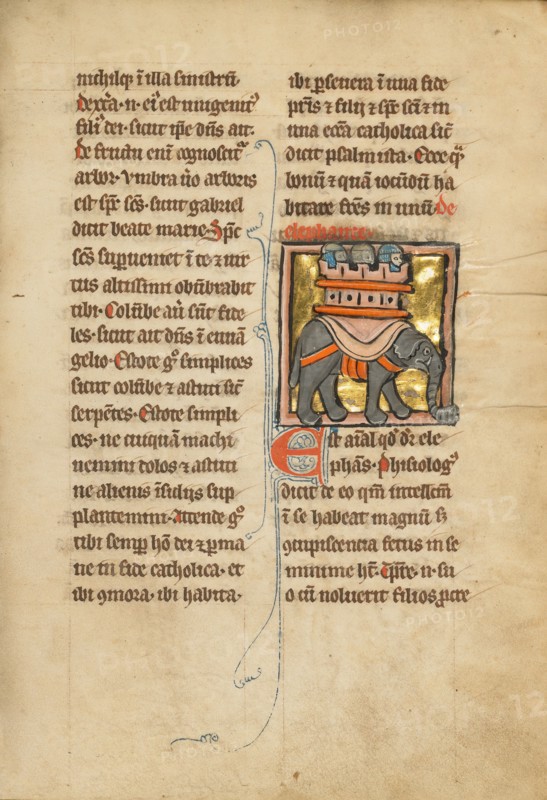 nichilqȝ ī illa sinistrū.
Dexťa. n. eī est unigenitꝰ
fili dei. sicut ip̄e dn̄s ait.
De fructu enī cognoscitᷣ
arbor. Vmbra u̾o arboris
est sp̄c sc̄s. sicut gabriel
dicit beate marie. Sp̄c
sc̄s sup̄ueniet ī te ⁊ uir
tus altissimi obūbrabit
tibi. Colūbe aū sūt fide
les. sicut ait dn̄s ī euuā
gelio. Estote gͦ simplices
sicut colūbe ⁊ astuti sic̄
serpētes. Estote simpli
ces. ne cuiquā machi
nemini dolos ⁊ astuti
ne alienis īsidijs sup
plantemini. Attende gͦ
tibi semp̲ hō dei ⁊ p̲ma
ne in fide catholica. et
ibi ꝯmora. ibi habita.
ibi p̲seuera ī una fide
pr̄is ⁊ filij ⁊ sp̄c sc̄i ⁊ in
una ecc̄a catholica sic̄
dicit psalmista. Ecce qͣ̄
bonū ⁊ quā iocūdū ha
bitare fr̄es in unū. De
elephante.
Est aīal qd̄ dr̄ ele
phās. Phisiologꝰ
dicit de eo qm̄ intellc̄m
ī se habeat magnū sꝫ
ꝯcupiscentia fetus in se
minime ht̄. Tp̄re. n. su
o cū uoluerit filios p̲cre
PHOTO12